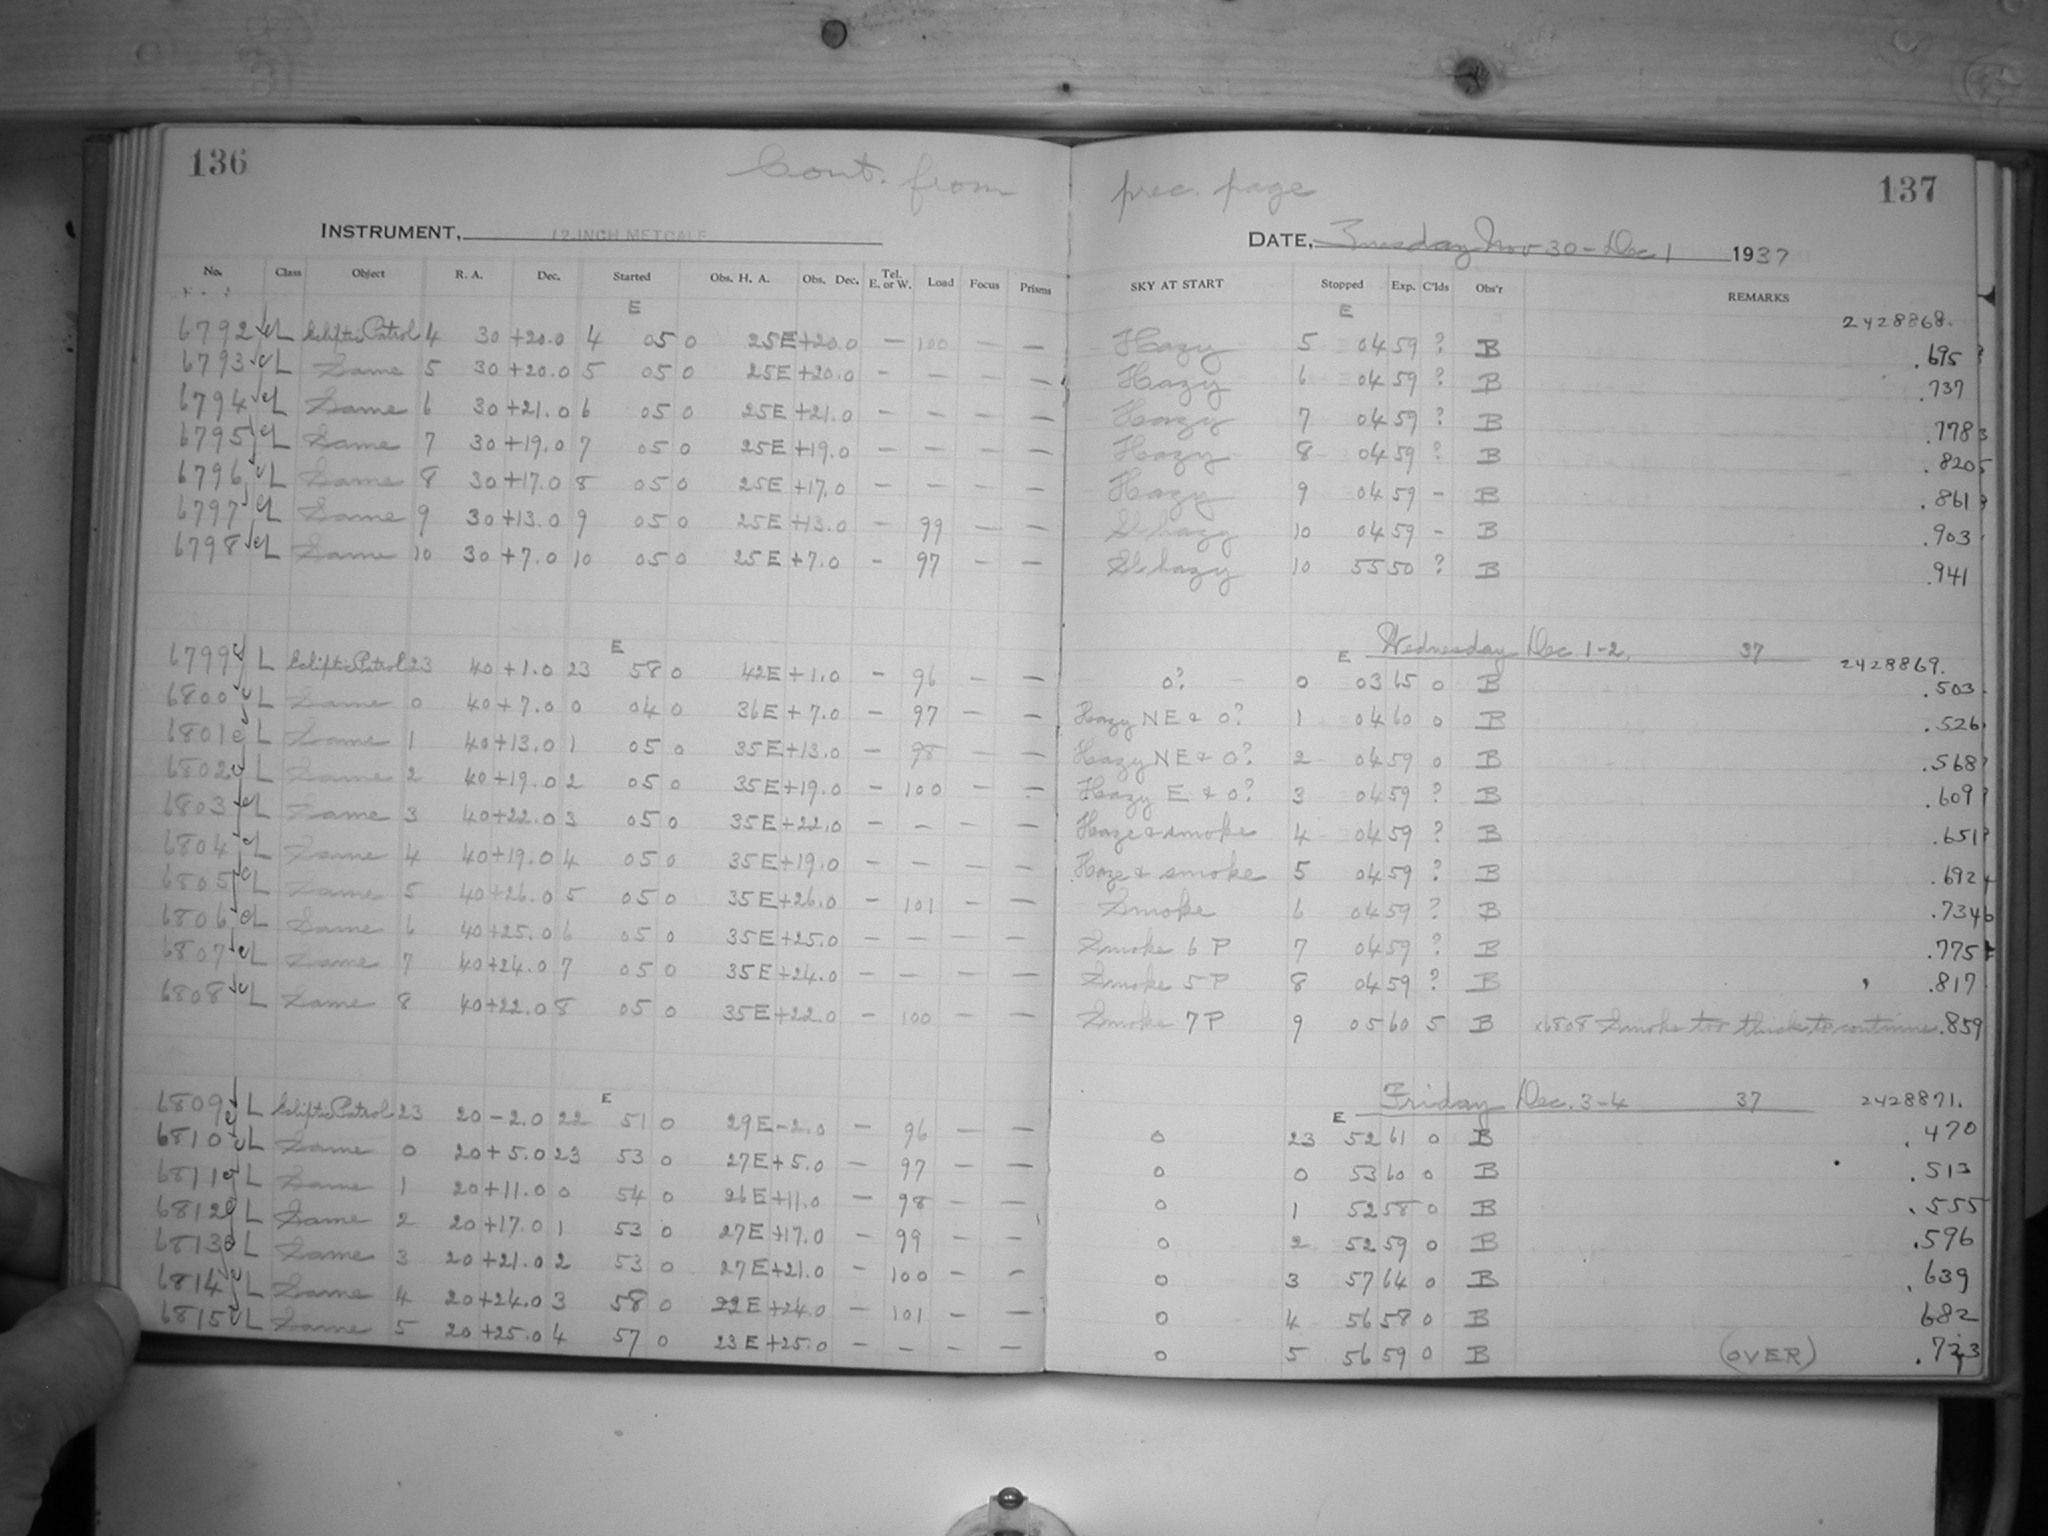 136
Cont. from prec. page
137
INSTRUMENT, 12-INCH METCALF
DATE, Tuesday Nov 30 - Dec 1 1937
No. Class Object R. A. Dec. Started Obs. H. A. Obs. Dec. Tel. E. or W. Load Focus Prisms SKY AT START Stopped Exp. C'lds Obs'r REMARKS
E E 2428868.
6792 L Ecliptic Patrol 4 30 +20.0 4 05 0 25E +20.0 – 100 – – Hazy 5 04 59 ? B .695
6793 L Same 5 30 +20.0 5 05 0 25E +20.0 – – – – Hazy 6 04 59 ? B .737
6794 L Same 6 30 +21.0 6 05 0 25E +21.0 – – – – Hazy 7 04 59 ? B .778
6795 L Same 7 30 +19.0 7 05 0 25E +19.0 – – – – Hazy 8 04 59 ? B .820
6796 L Same 8 30 +17.0 8 05 0 25E +17.0 – – – – Hazy 9 04 59 – B .861
6797 L Same 9 30 +13.0 9 05 0 25E +13.0 – 99 – – Sl hazy 10 04 59 – B .903
6798 L Same 10 30 +7.0 10 05 0 25E +7.0 – 97 – – Sl hazy 10 55 50 ? B .941
E E Wednesday Dec. 1-2. 37 2428869.
6799 L Ecliptic Patrol 23 40 +1.0 23 58 0 42E +1.0 – 96 – – 0? 0 03 65 0 B .503
6800 L Same 0 40 +7.0 0 04 0 36E +7.0 – 97 – – Hazy NE & 0? 1 04 60 0 B .526
6801 L Same 1 40 +13.0 1 05 0 35E +13.0 – 98 – – Hazy NE & 0? 2 04 59 0 B .568
6802 L Same 2 40 +19.0 2 05 0 35E +19.0 – 100 – – Hazy E & 0? 3 04 59 ? B .609
6803 L Same 3 40 +22.0 3 05 0 35E +22.0 – – – – Haze & smoke 4 04 59 ? B .651
6804 L Same 4 40 +19.0 4 05 0 35E +19.0 – – – – Haze & smoke 5 04 59 ? B .692
6805 L Same 5 40 +26.0 5 05 0 35E +26.0 – 101 – – Smoke 6 04 59 ? B .734
6806 L Same 6 40 +25.0 6 05 0 35E +25.0 – – – – Smoke 6 P 7 04 59 ? B .775
6807 L Same 7 40 +24.0 7 05 0 35E +24.0 – – – – Smoke 5 P 8 04 59 ? B .817
6808 L Same 8 40 +22.0 8 05 0 35E +22.0 – 100 – – Smoke 7 P 9 05 60 5 B x6808 Smoke too thick to continue .859
E E Friday Dec. 3-4 37 2428871.
6809 L Ecliptic Patrol 23 20 –2.0 22 51 0 29E –2.0 – 96 – – 0 23 52 61 0 B .470
6810 L Same 0 20 +5.0 23 53 0 27E +5.0 – 97 – – 0 0 53 60 0 B .513
6811 L Same 1 20 +11.0 0 54 0 26E +11.0 – 98 – – 0 1 52 58 0 B .555
6812 L Same 2 20 +17.0 1 53 0 27E +17.0 – 99 – – 0 2 52 59 0 B .596
6813 L Same 3 20 +21.0 2 53 0 27E +21.0 – 100 – – 0 3 57 64 0 B .639
6814 L Same 4 20 +24.0 3 58 0 22E +24.0 – 101 – – 0 4 56 58 0 B 682
6815 L Same 5 20 +25.0 4 57 0 23E +25.0 – – – – 0 5 56 59 0 B (OVER) .723